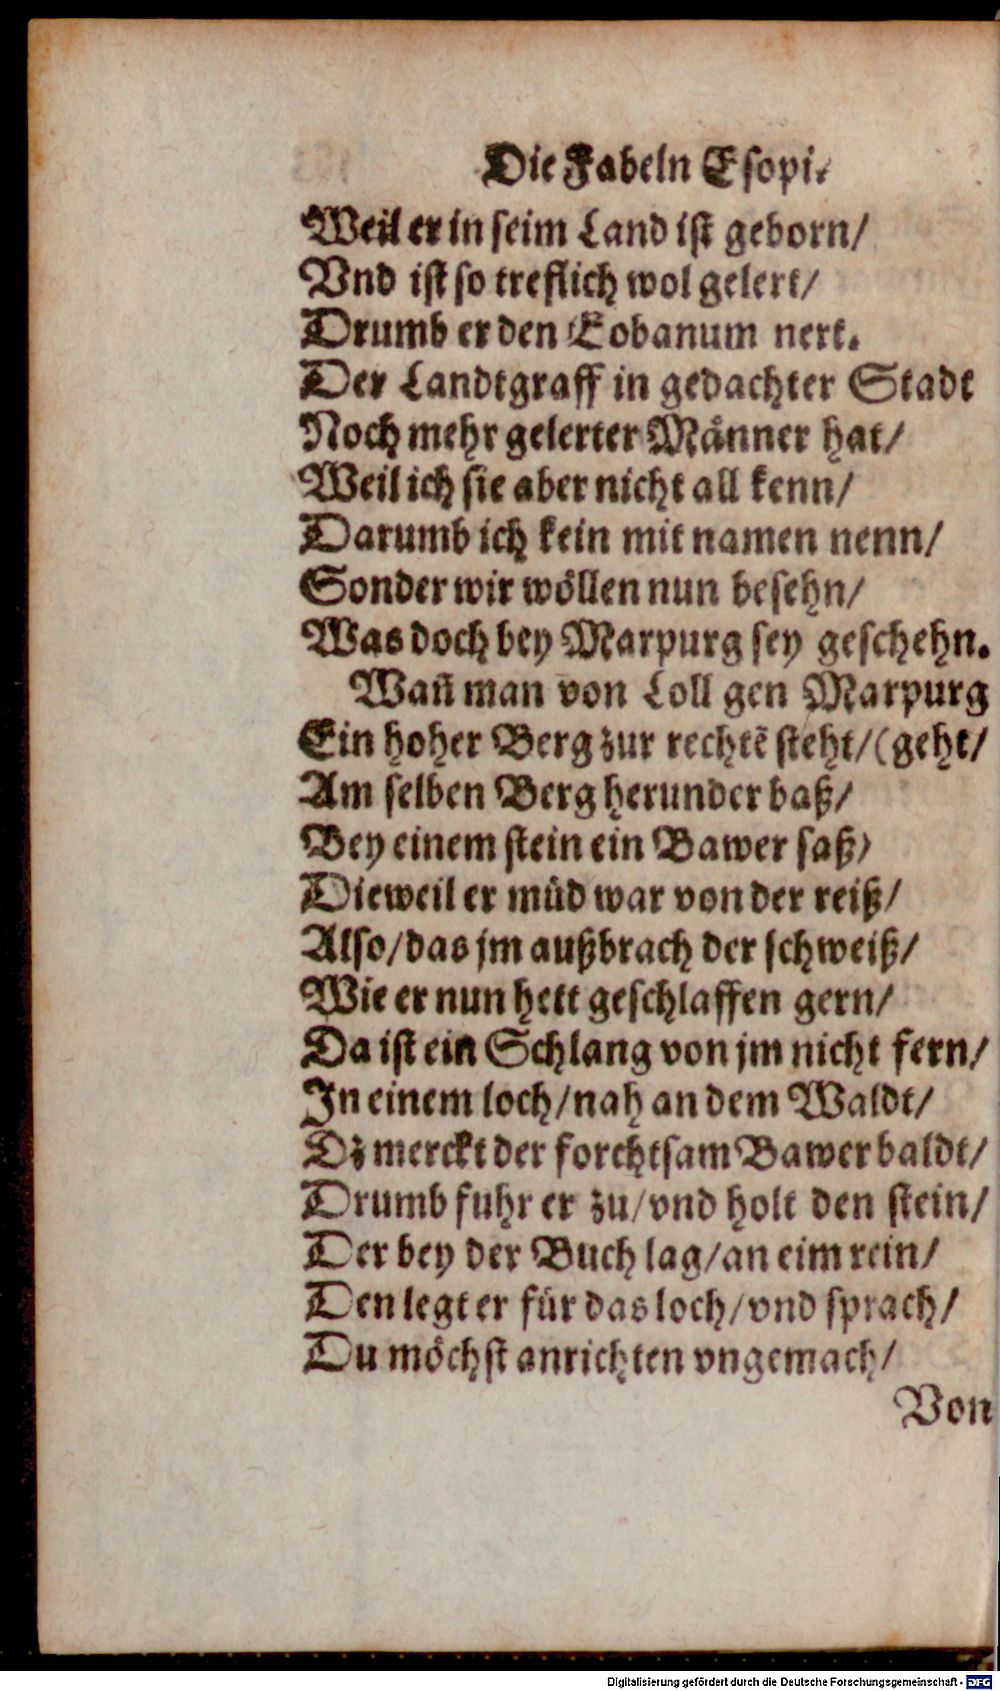 Die Fabeln Esopi.
Weil er in seim Land ist geborn/
Vnd ist so treflich wol gelert/
Drumb er den Eobanum nert.
Der Landtgraff in gedachter Stadt
Noch mehr gelerter Männer hat/
Weil ich sie aber nicht all kenn/
Darumb ich kein mit namen nenn/
Sonder wir wöllen nun besehn/
Was doch bey Marpurg sey geschehn.
Wañ man von Loll gen Marpurg
Ein hoher Berg zur rechtẽ steht/(geht/
Am selben Berg herunder baß/
Bey einem stein ein Bawer saß/
Dieweil er müd war von der reiß/
Also/das jm außbrach der schweiß/
Wie er nun hett geschlaffen gern/
Da ist ein Schlang von jm nicht fern/
In einem loch/nah an dem Waldt/
Dz merckt der forchtsam Bawer baldt/
Drumb fuhr er zu/vnd holt den stein/
Der bey der Buch lag/an eim rein/
Den legt er für das loch/vnd sprach/
Du möchst anrichten vngemach/
Von
Digitalisierung gefördert durch die Deutsche Forschungsgemeinschaft - DFG